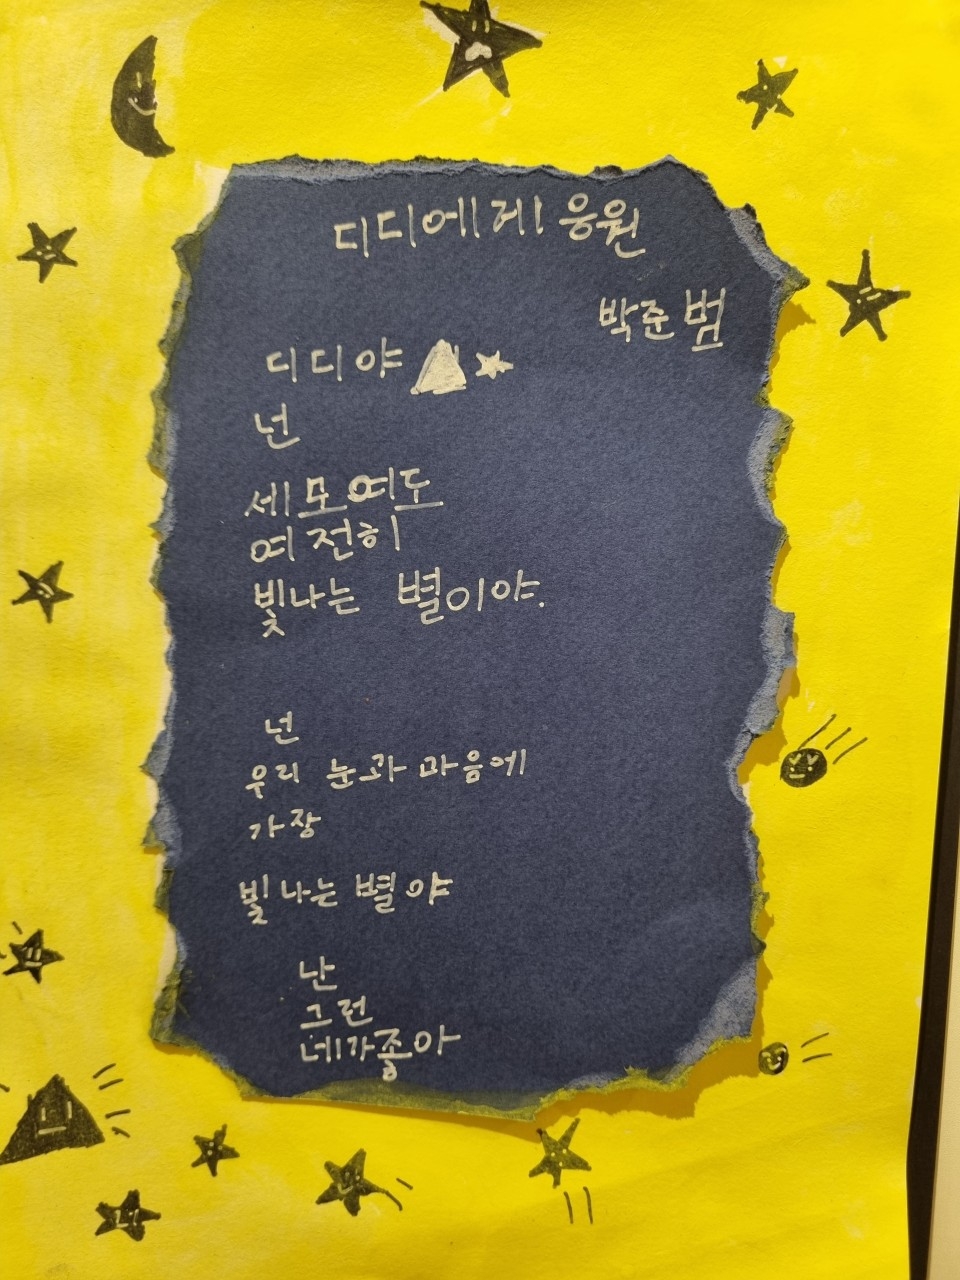 디디에게 응원
박준범
디디야
넌
세모여도
여전히
빛나는 별이야.
넌
우리 눈과 마음에
가장
빛나는 별야
난
그런
네가좋아